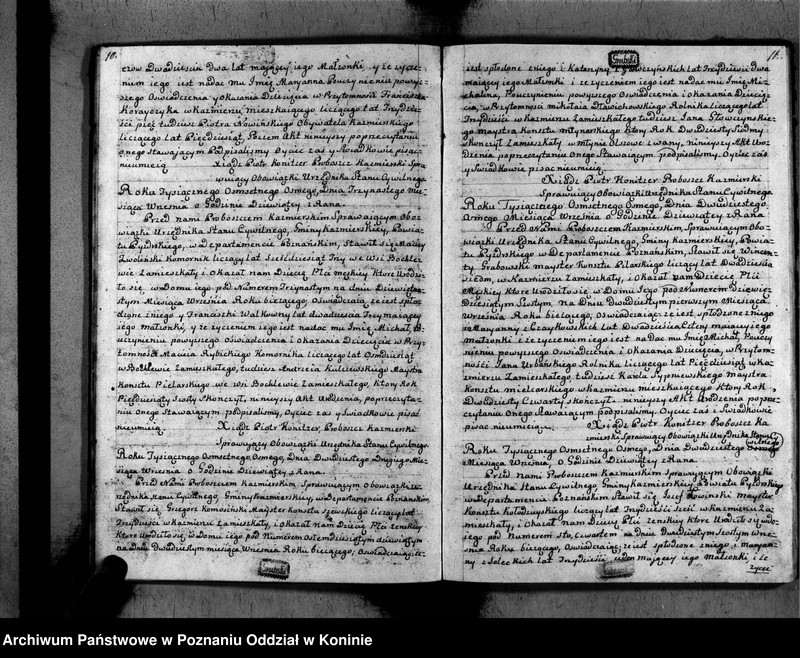 10.
czow Dwadzieścia Dwa Lat mający iego Małżonki, y że życze-
niem iego iest nadać mu Imię Maryanna Po uczynieniu powyż-
szego Oświadczenia y okazania Dziecięcia w Przytomności Franciszka
w Kaźmierzu, mieszkaiącego liczącego lat Trzydzieś-
ci pięć tudzież Piotra Nowińskiego Obywatela Kaźmirskiego
liczącego lat Pięćdziesiąt, Poczem Akt niniejszy po przeczytaniu
onego Stawaiącym Podpisaliśmy Oyciec zaś y Świadkowie pisać
nieumieią Xiądz Piotr Konitzer Proboszcz Kazmirski Spra-
wuiący Obowiązki Urzędnika Stanu Cywilnego
Roku Tysiącznego Osmsetnego Osmego, Dnia Trzynastego Mie-
siąca Września o Godzinie Dziewiątey z Rana.
Przed nami Proboszczem Kazmirskim Sprawuiącym Obo-
wiązki Urzędnika Stanu Cywilnego, Gminy Kazmirskiey, Powia-
tu Pyzdrskiego, w Departamencie Poznańskim, Stawił się Maciey
Zwoliński Komornik liczący lat Sześćdziesiąt Trzy we Wsi Bochle-
wie Zamieszkały i okazał nam Dziecię Płci męskiey które urodzi-
ło się, w Domu iego pod Numerem Trzynastym na dniu Dziewiętna-
stym Miesiąca Września Roku bieżącego, oświadczaiąc że iest spło-
dzone z niego y Franciszki Lat dwadzieścia Trzy maiącey
iego Małżonki, y że życzeniem iego iest nadać mu Imię Michał Po
uczynieniu powyższego Oświadczenia i okazania Dziecięcia w Przy-
tomności Macieia Rybickiego Komornika liczącego lat Osmdziesiąt
w Bochlewie Zamieszkałego, tudzież Andrzeia Kulczewskiego Maystra
Konsztu Pielarskiego we wsi Bochlewie Zamieszkałego, który Rok
Pięćdziesiąty Szósty Skończył, niniejszy Akt Urodzenia, po przeczyta-
niu Onego Stawaiącym podpisaliśmy, Oyciec zaś y Świadkowie pisać
nieumieią. Xiądz Piotr Konitzer, Proboszcz Kazmierski
Sprawuiący Obowiązki Urzędnika Stanu Cywilnego.
Roku Tysiącznego Osmsetnego Osmego, Dnia Dwudziestego Drugiego Mie-
siąca Września, o Godzinie Dziewiątey z Rana.
Przed Nami Proboszczem Kazmirskim, Sprawuiącym Obowiązki U-
rzędnika Stanu Cywilnego, Gminy Kazmirskiey, w Departamencie Poznańskim,
Stawił się Grzegorz Komosiński Mayster Konsztu Szewskiego liczący lat
Trzydzieści w Kazmierzu Zamieszkały, i okazał nam Dziecię Płci żeńskiey
Które Urodziło się, w Domu iego pod Numerem Osiemdziesiątym dziewiątym
na Dniu Dwudziestym miesiąca Września Roku bieżącego, Oświadczaiąc, że
11.
iest spłodzone z niego i Katarzyny z Lat Trzydzieści dwa
maiącey iego Małżonki i że życzeniem iego iest nadać mu Imię Mi-
chalina, Po uczynieniu powyższego Oświadczenia i okazania Dziecię-
cia, w Przytomności Mikołaia Rolnika liczącego lat
Trzydzieści w Kazmierzu Zamieszkałego tudzież Jana
go Maystra Konsztu Młynarskiego który Rok Dwudziesty Siódmy
skończył Zamieszkały w Młynie zwany, niniejszy Akt Uro-
dzenia po przeczytaniu Onego Stawaiącym podpisaliśmy. Oyciec zaś
y Świadkowie pisać nieumieią.
Xiądz Piotr Konitzer Proboszcz Kazmierski
Sprawuiący Obowiązki Urzędnika Stanu Cywilnego.
Roku Tysiącznego Osmsetnego Osmego, Dnia Dwudziestego
Osmego Miesiąca Września o Godzinie Dziewiątey z Rana
Przed Nami Proboszczem Kazmirskim, Sprawuiącym Obo-
wiązki Urzędnika Stanu Cywilnego, Gminy Kazmirskiey, Powia-
tu Pyzdrskiego w Departamencie Poznańskim, Stawił się Wincen-
ty Grabowski mayster Konsztu Pilarskiego liczący lat Dwadzieścia
siedm, w Kazmierzu Zamieszkały, i okazał nam Dziecię Płci
Męskiey Które Urodziło się w Domu Jego pod Numerem dziewięć-
dziesiątym Szóstym, na Dniu Dwudziestym pierwszym Miesiąca
Września Roku bieżącego, oświadczaiąc że iest, spłodzone z niego
i Maryanny z Czaykowskich Lat Dwadzieścia Cztery maiącey iego
małżonki i że życzeniem iego iest nadać mu Imię Michał, Po uczy-
nieniu powyższego Oświadczenia i okazania Dziecięcia, w Przytom-
ności Jana Urbańskiego Rolnika liczącego lat Pięćdziesiąt w Ka-
zmierzu Zamieszkałego tudzież Karola maystra
Konsztu w Kazmierzu mieszkaiącego który Rok
Dwudziesty Czwarty Skończył. niniejszy Akt Urodzenia po prze-
czytaniu Onego Stawaiącym podpisaliśmy. Oyciec zaś i Świadkowie
pisać nieumieią. Xiądz Piotr Konitzer Proboszcz Ka-
zmierski, Sprawuiący Obowiązki Urzędnika Stanu Cy-
wilnego
Roku Tysiącznego Osmsetnego Osmego, Dnia Dwudziestego Osmego
Miesiąca Września, o Godzinie Dziewiątey z Rana.
Przed Nami Proboszczem Kazmirskim Sprawuiącym Obowiązki
Urzędnika Stanu Cywilnego, Gminy Kazmirskiey Powiatu Pyzdrskiego
w Departamencie Poznańskim Stawił się Józef mayster
Konsztu Kołodziyskiego liczący lat Trzydzieści Sześć w Kazmierzu Za-
mieszkały, i okazał nam Dziecię Płci żeńskiey które Urodziło się w do-
mu iego pod Numerem Sto, Czwartem na Dniu Dwudziestym Szóstym Wrze-
śnia Roku bieżącego, Oświadczaiąc że iest spłodzone z niego i Maryan-
ny z Soleckich lat Trzydzieści ieden maiącey iego małżonki i że
życze
Archiwum Państwowe w Poznaniu Oddział w Koninie